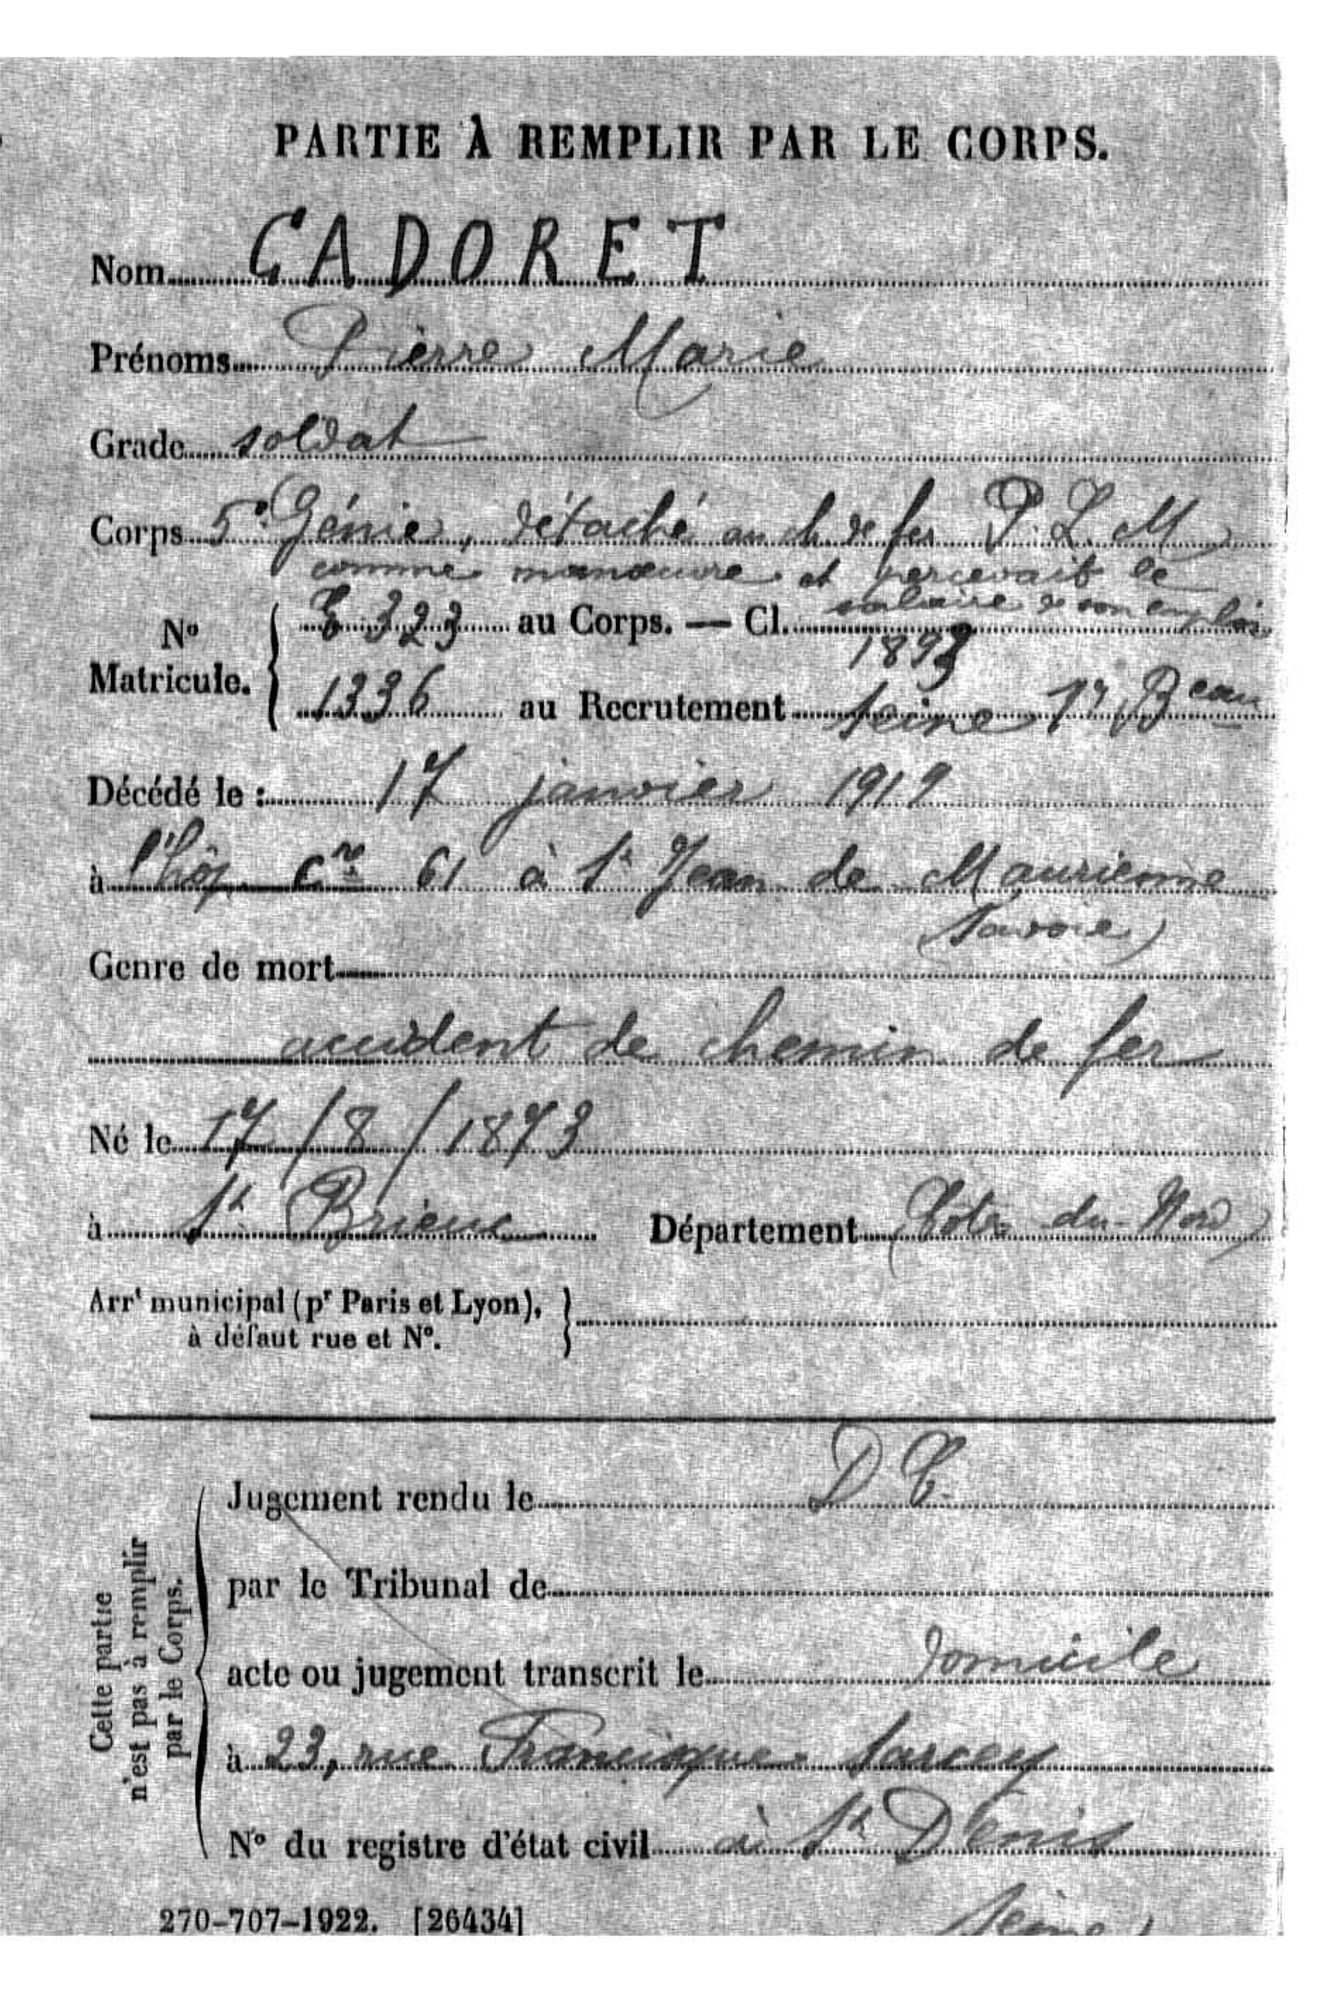 PARTIE À REMPLIR PAR LE CORPS.
Nom CADORET
Prénoms Pierre Marie
Grade soldat
Corps 5e Génie, détaché au ch de fer P. L. M
comme manœuvre et percevait le
salaire de son emploi
N° Matricule. { 323 au Corps. — Cl. 1893
1336 au Recrutement Seine 1r Beau
Décédé le : 17 janvier 1919
à l'hôp. Cre 61 à St Jean de Maurienne
(Savoie)
Genre de mort
accident de chemin de fer
Né le 17/8/1873
à St Brieuc Département (Côtes-du-Nord)
Arrt municipal (pr Paris et Lyon), }
à défaut rue et N°.
Cette partie
n'est pas à remplir
par le Corps.
Jugement rendu le D C.
par le Tribunal de
acte ou jugement transcrit le domicile
à 23, rue Francisque Sarcey
N° du registre d'état civil à St Denis
270-707-1922. [26434] Seine)